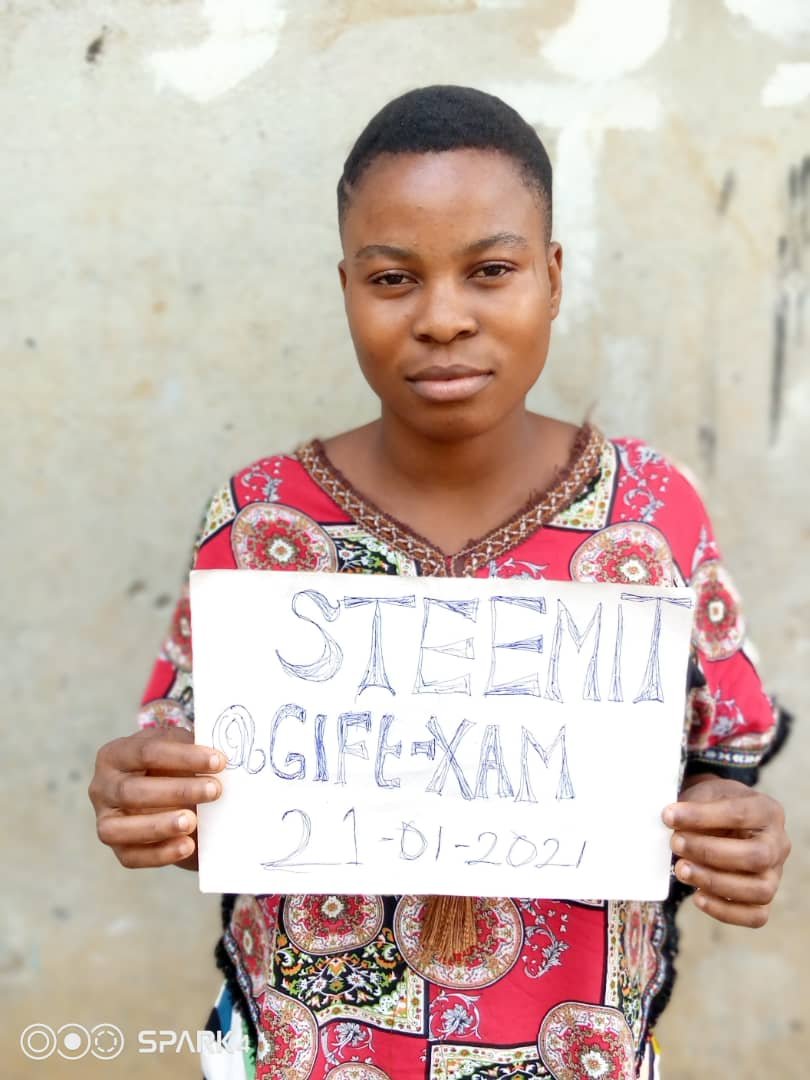 STEEMIT
@GIFt-XAM
21-01-2021
SPARK4